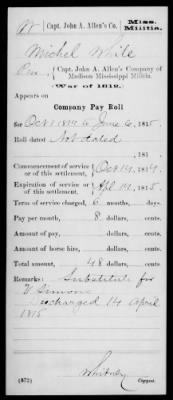 W | Capt. John A. Allen's Co., | Miss. Militia.
Michel While
Pvt., Capt. John A. Allen's Company of Madison Mississippi Militia.
War of 1812.
Appears on
Company Pay Roll
for Oct 8 1814 to June 6, 1815.
Roll dated Not dated
, 181 .
Commencement of service or of this settlement, Oct 14, 1814.
Expiration of service or of this settlement, Apl 14, 1815.
Term of service charged, 6 months, days.
Pay per month, 8 dollars, cents.
Amount of pay, dollars, cents.
Amount of horse hire, dollars, cents.
Total amount, 48 dollars, cents.
Remarks: Substitute for
V Simone
Discharged 14 April
1815
Whitney
(572) Copyist.